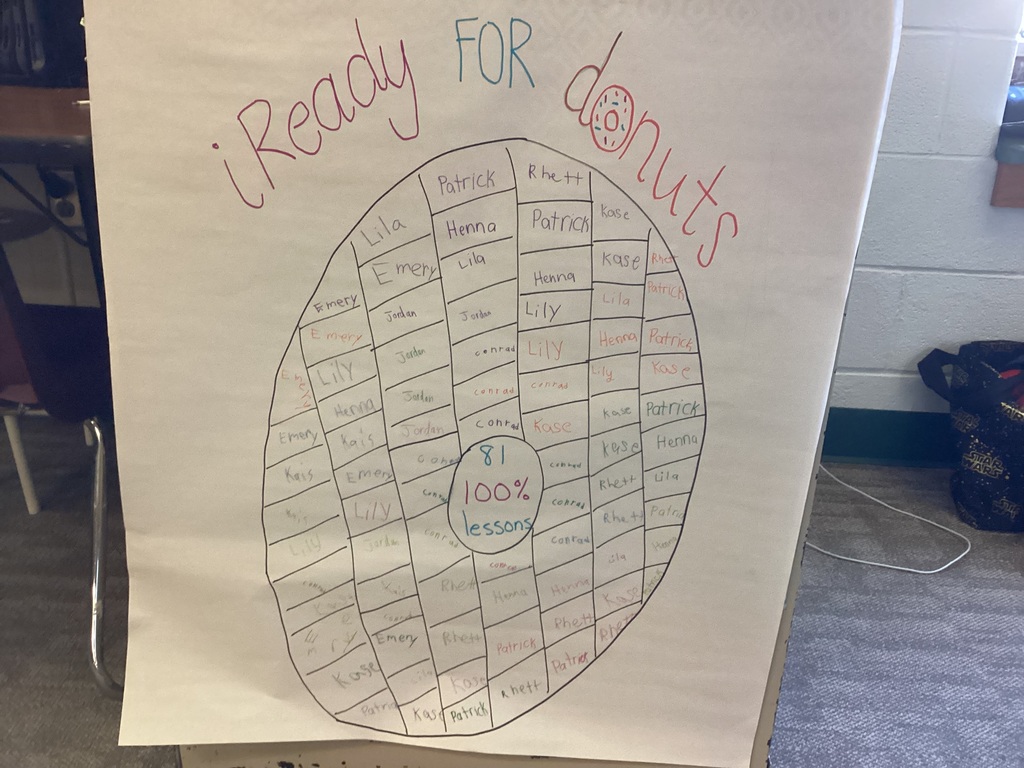 iReady FOR donuts
Patrick
Rhett
Lila
Henna
Patrick
Kase
Emery
Lila
Henna
Kase
Rhett
Emery
Jordan
Jordan
Lily
Lila
Patrick
Emery
Lily
Jordan
conrad
Lily
Henna
Patrick
Emery
Henna
Jordan
conrad
conrad
Lily
Kase
Emery
Kais
Jordan
conrad
Kase
Kase
Patrick
Kais
Emery
conrad
81
100%
lessons
conrad
Kase
Henna
Kais
Lily
conrad
conrad
Rhett
Lila
Lily
Jordan
conrad
conrad
conrad
Rhett
Patric
Kais
Rhett
Henna
Henna
Lila
conrad
Emery
Rhett
Patrick
Rhett
Kase
Emery
Kase
Kase
Rhett
Patrick
Rhett
Patrick
Kase
Patrick